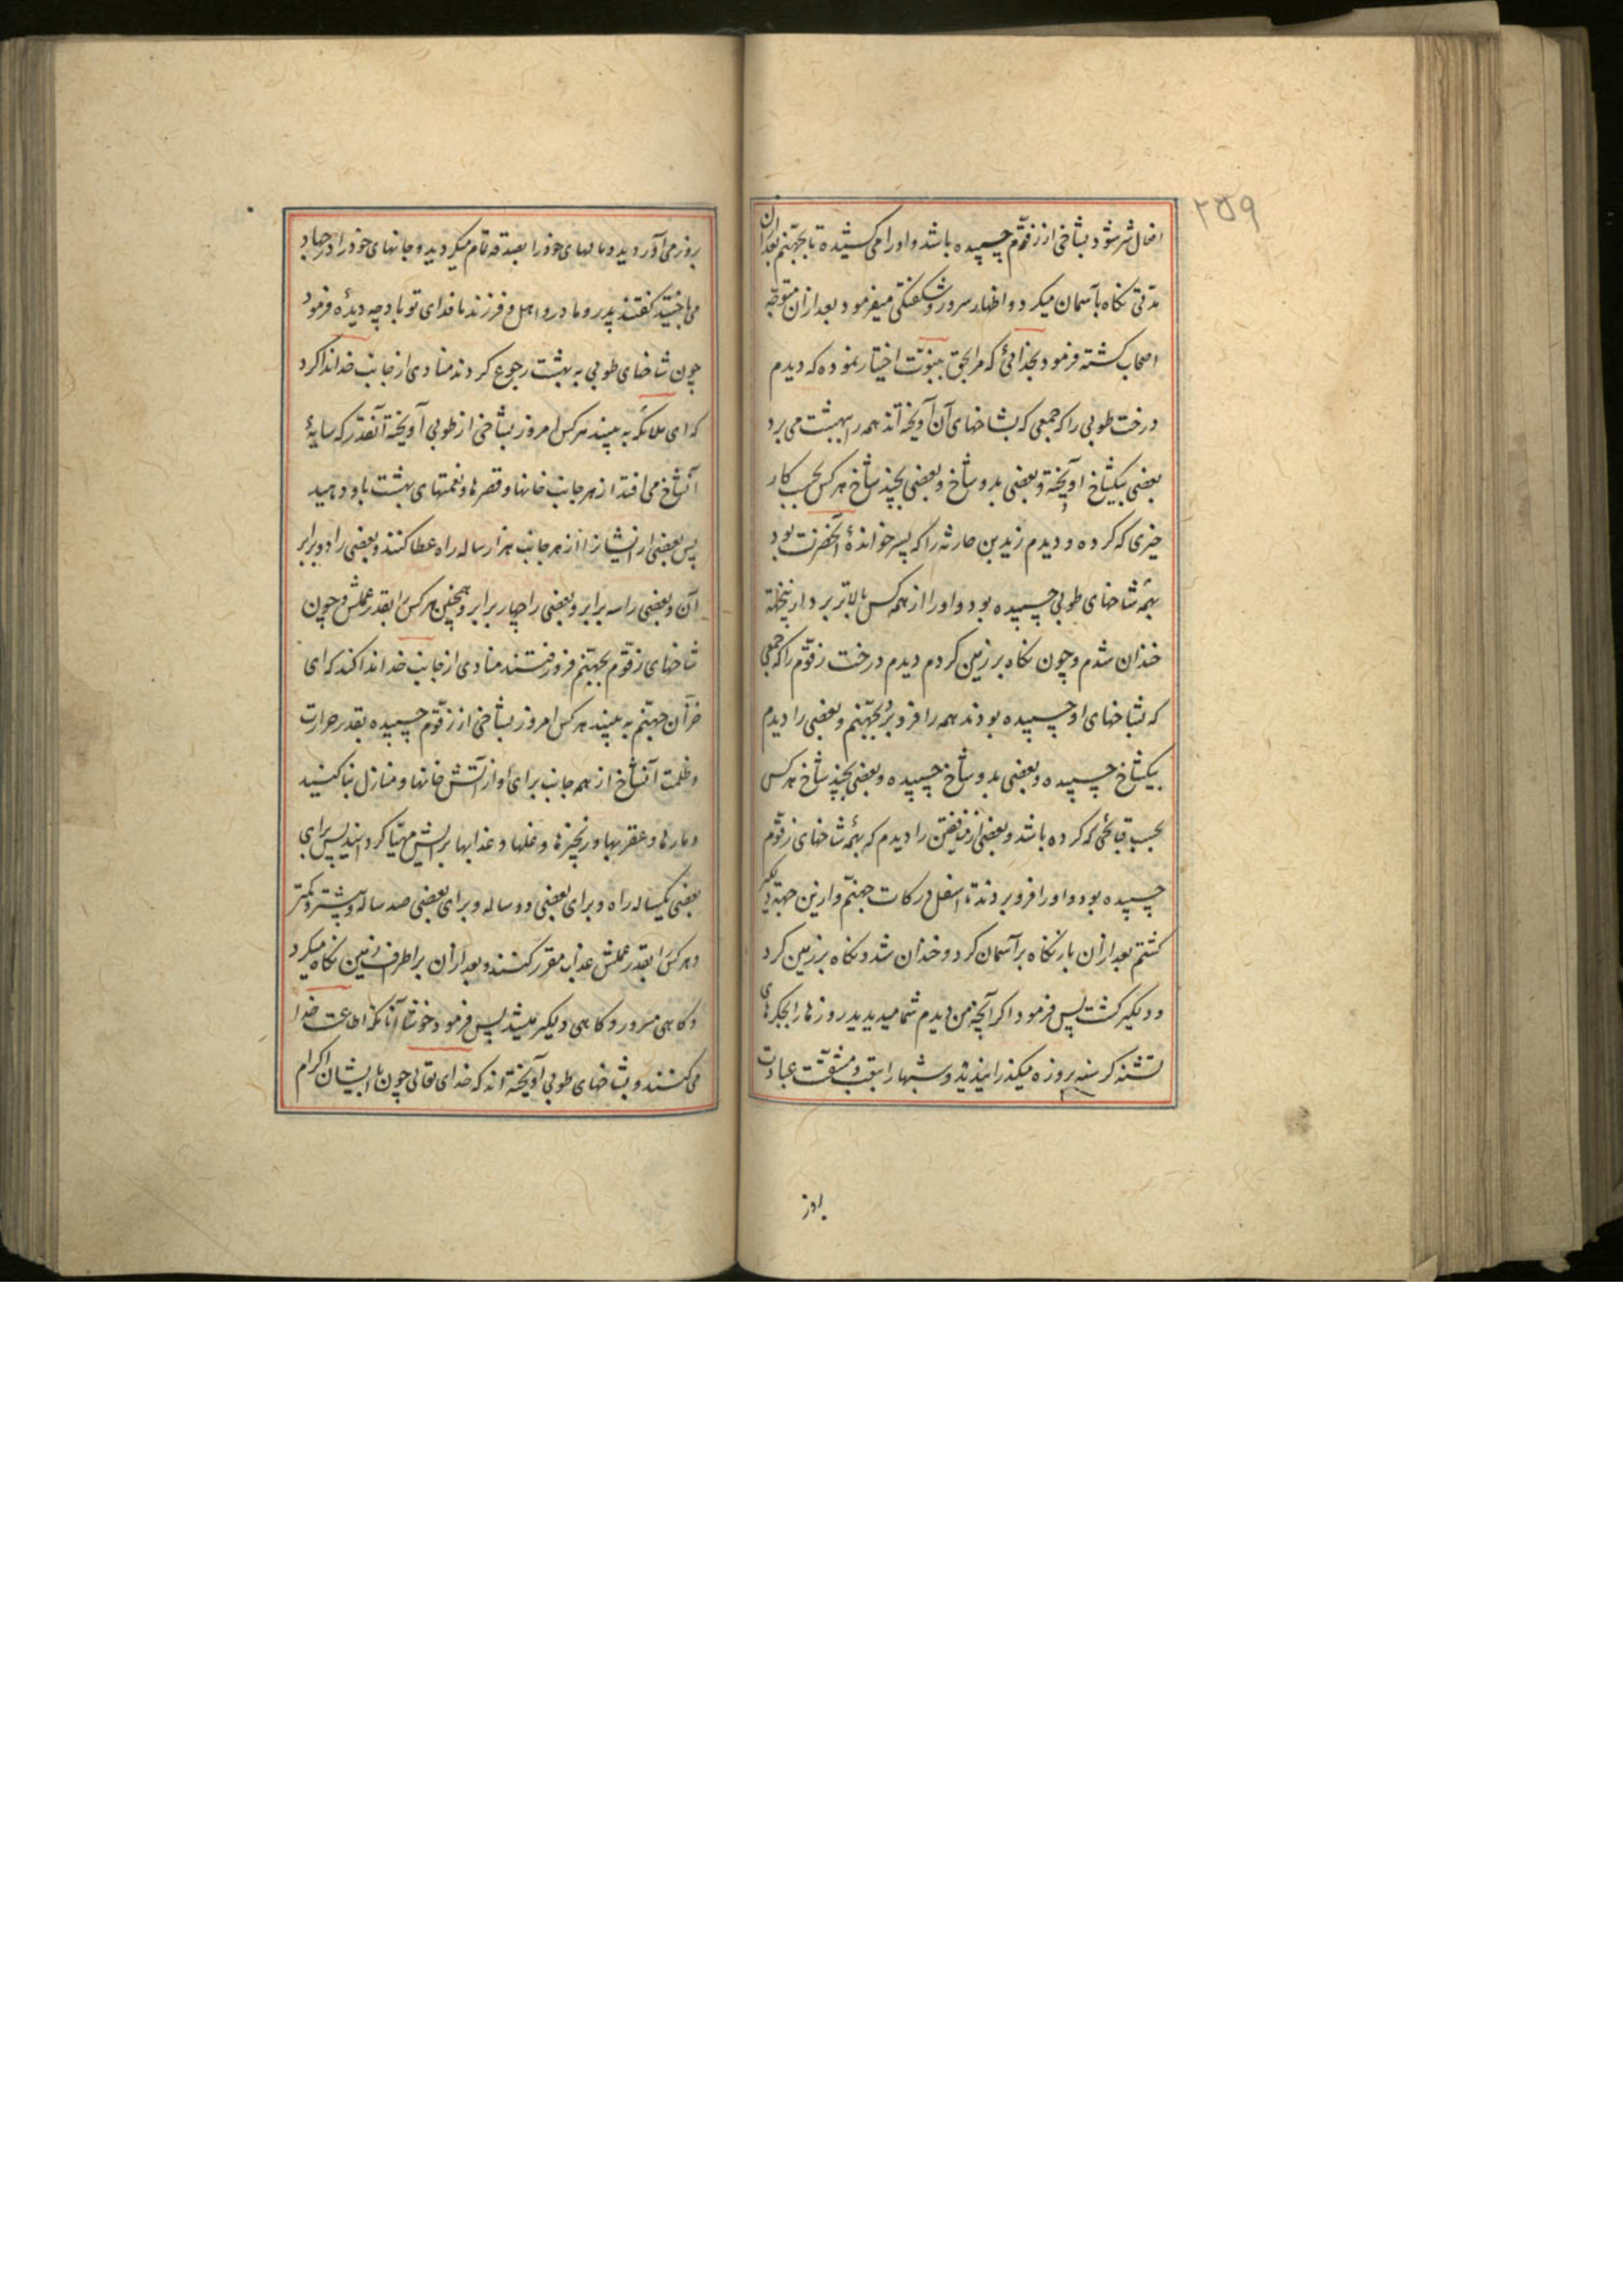 ۲۵۹
افعال شر شود بشاخی از زقّوم چسپیده باشد و اورا می کشیده تا بجهنّم بعد ازان
مدتی نکاه بآسمان میکرد و اظهار سرور و شکفتکی میفرمود بعد ازان متوجّه
اصحاب کشته فرمود بخدائی که مرا بحق بنبوّت اختیار نموده که دیدم
درخت طوبی را که جمعی که بشاخهای آن آویخته اند همه را ببهشت می برد
بعضی بیکشاخ اویخته و بعضی بدو شاخ و بعضی بچند شاخ هر کس بحسب کار
خیری که کرده و دیدم زید بن حارثه را که پسر خواندهٔ آنحضرت بود
بهمهٔ شاخهای طوبی چسپیده بود و اورا از همه کس بالاتر برد ازینجهة
خندان شدم و چون نکاه بر زمین کردم دیدم درخت زقّوم را که جمعی
که بشاخهای او چسپیده بودند همه را فرو برد بجهنّم و بعضی را دیدم
بیکشاخ چسپیده و بعضی بدو شاخ چسپیده و بعضی بچند شاخ هر کس
بحسب قبائحی که کرده باشد و بعضی از منافقین را دیدم که بهمهٔ شاخهای زقّوم
چسپیده بود و اورا فرو بردند تا اسفل درکات جهنّم و ازین جهة دلکیر
کشتم بعد ازان باز نکاه بر آسمان کرد و خندان شد و نکاه بر زمین کرد
و دلکیر کشت پس فرمود اکر آنچه من دیدم شما میدیدید روزها را بجکرهای
تشنه کرسنه بروزه میکذرانیدید و شبها را بتعب و مشقّت عبادت
بروز
بروز می آوردید و مالهای خود را بصدقه تمام میکردید و جانهای خود را در جهاد
می باختید کفتند پدر و مادر و اهل و فرزند ما فدای تو باد چه دیدهٔ فرمود
چون شاخهای طوبی به بهشت رجوع کردند منادی از جانب خدا ندا کرد
که ای ملائکه به بینید هر کس امروز بشاخی از طوبی آویخته آنقدر که سایهٔ
آنشاخ می افتد از هر جانب خانها و قصرها و نعمتهای بهشت باو دهید
پس بعضی از ایشانرا از هر جانب هزار ساله راه عطا کنند و بعضی را دو برابر
آن و بعضی را سه برابر و بعضی را چهار برابر و همچنین هر کس را بقدر عملش و چون
شاخهای زقّوم بجهنّم فرو رفتند منادی از جانب خدا ندا کند که ای
خزّان جهنّم به بینید هر کس امروز بشاخی از زقّوم چسپیده بقدر حرارت
و ظلمت آنشاخ از همه جانب برای او از آتش خانها و منازل بنا کنید
و مارها و عقربها و زنجیرها و غلها و عذابها برایش مهیّا کردانید پس برای
بعضی یکساله راه و برای بعضی دو ساله و برای بعضی صد ساله و بیشتر و کمتر
و هر کس را بقدر عملش عذاب مقرر کنند و بعد ازان بر اطراف زمین نکاه میکرد
و کاهی مسرور و کاهی دلکیر میشد پس فرمود خوشا آنانکه اطاعت خدا
می کنند و بشاخهای طوبی آویخته اند که خدای تعالی چون با ایشان اکرام